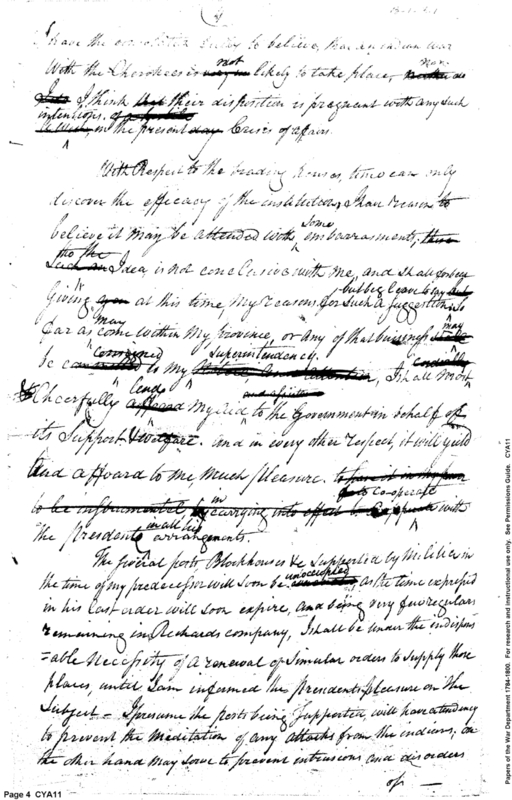 I have the consolation Surly to believe, that an indian war
With the Cherokees is not likely to take place, nor
I think their disposition is pregnant with any such
intentions. in the present day Crisis of affairs.
With Respect to the trading houses, time can only
discover the efficacy of the institution, I have reason to
believe it may be attended with some embarrassments, this
tho the
Such an Idea, is not conclusive with me, and Shall forbear
Giving at this time, My reasons for Such a Suggestion. So
but beg leave to say
far as may come within My province, or any of that business may
be committed to My Superintendency, I shall most
consigned
Cheerfully lend My Aid to the Government in behalf of
its Support & welfare. and in every other respect, it will yield
and affoard to me, Much pleasure, to have it in my power
to co-operate
to be instrumental by in carrying into effect with
the presidents in all his arrangements.
The several posts Blockhouses &c Supported by Militia in
the time of my predecessor will soon be unoccupied, as the time expressed
in his last order will soon expire, and being very few regulars
remaining in Richards company, I shall be under the indispens
=able Necessity of a renewal of Simular orders to Supply those
places, until I am informed the presidents pleasure on the
Subject - I presume the posts being Supported, will have a tendency
to prevent the Meditation of any attacks from the indians, on
the other hand May Serve to prevent intrusions and disorders
of -
Page 4 CYA11
Papers of the War Department 1784-1800. For research and instructional use only. See Permissions Guide. CYA11